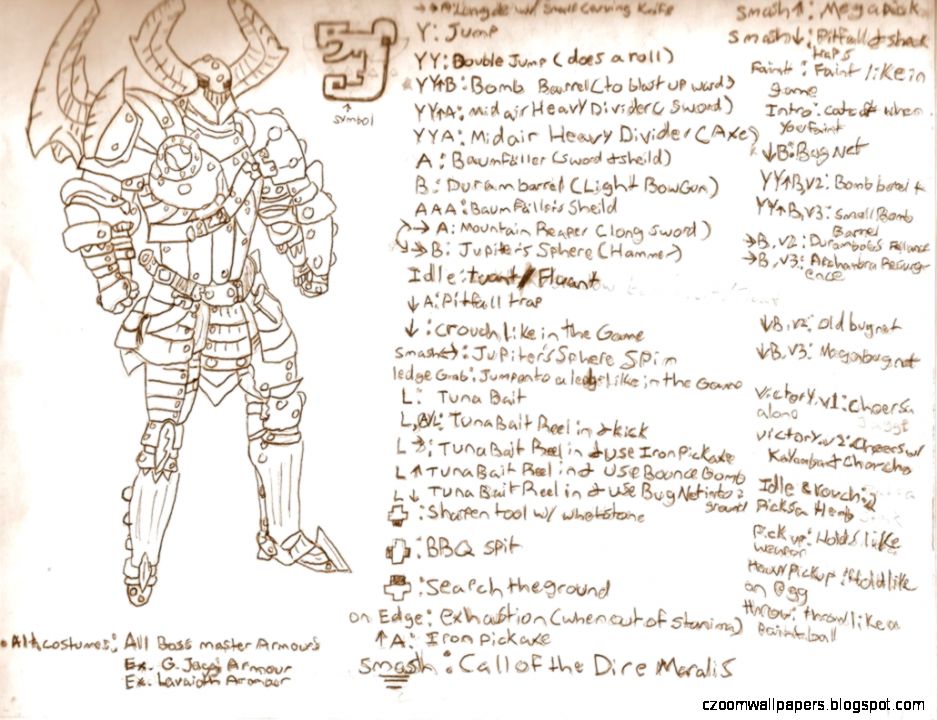 →→A: Longsword w/ Small Carving Knife
Y: Jump
YY: Double Jump (does a roll)
YY↑B: Bomb Barrel (to blast upwards)
YY↑A: midair Heavy Divider (Sword)
YYA: Midair Heavy Divider (Axe)
A: Baumfäller (sword & sheild)
B: Durambarrel (Light BowGun)
AAA: Baumfäller's Sheild
→A: Mountain Reaper (long sword)
→B: Jupiter's Sphere (Hammer)
Idle: Flaunt
↓A: Pitfall trap
↓: crouch like in the Game
Smash→: Jupiter's Sphere Spin
ledge Grab: Jump onto a ledge like in the Game
L: Tuna Bait
Tuna Bait Reel in & kick
L→: Tuna Bait Reel in & use Iron Pickaxe
L↑ Tuna Bait Reel in & use Bounce Bomb
L↓ Tuna Bait Reel in & use Bug Net into
ground
: Sharpen tool w/ whetstone
: BBQ Spit
: Search the ground
on Edge: exhaustion (when out of stamina)
↑A: Iron pickaxe
Smash: Call of the Dire Moralis
symbol
• Alt costumes: All Boss master Armours
Ex. G. Jaggi Armour
Ex. Lavaioth Armour
Smash↑: Mega pick
Smash↓: Pitfall & shock
traps
Faint: Faint like in
game
Intro: cats off when
you faint
↓B: Bug Net
YY↑B, v2: Bomb barrel
YY↑B, v3: Small Bomb
Barrel
→B, v2:
→B, v3:
↓B, v2: Old bug net
↓B, v3: Mega bug net
Victory, v1: Cheers
along
victory, v2: Cheers w/
Kayamba & Chacha
Idle Crouching
Picks a Herb
Pick up: Holds like
weapon
Heavy Pickup: Hold like
an egg
throw: throw like a
Paintball
czoomwallpapers.blogspot.com